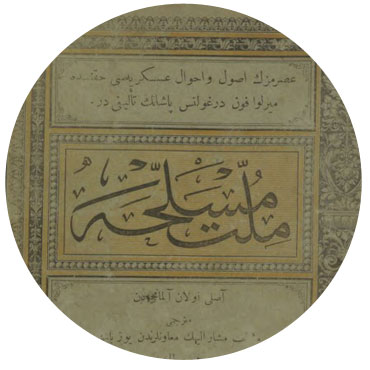 عصرمزك اصول واحوال عسكريه‌سى حقنده
ميرلوا فون درغولتس پاشانك تأليفى در.
ملت مسلحه
اصلى اولان آلمانجه‌دن
مترجمى
مشار اليهك معاونلرندن